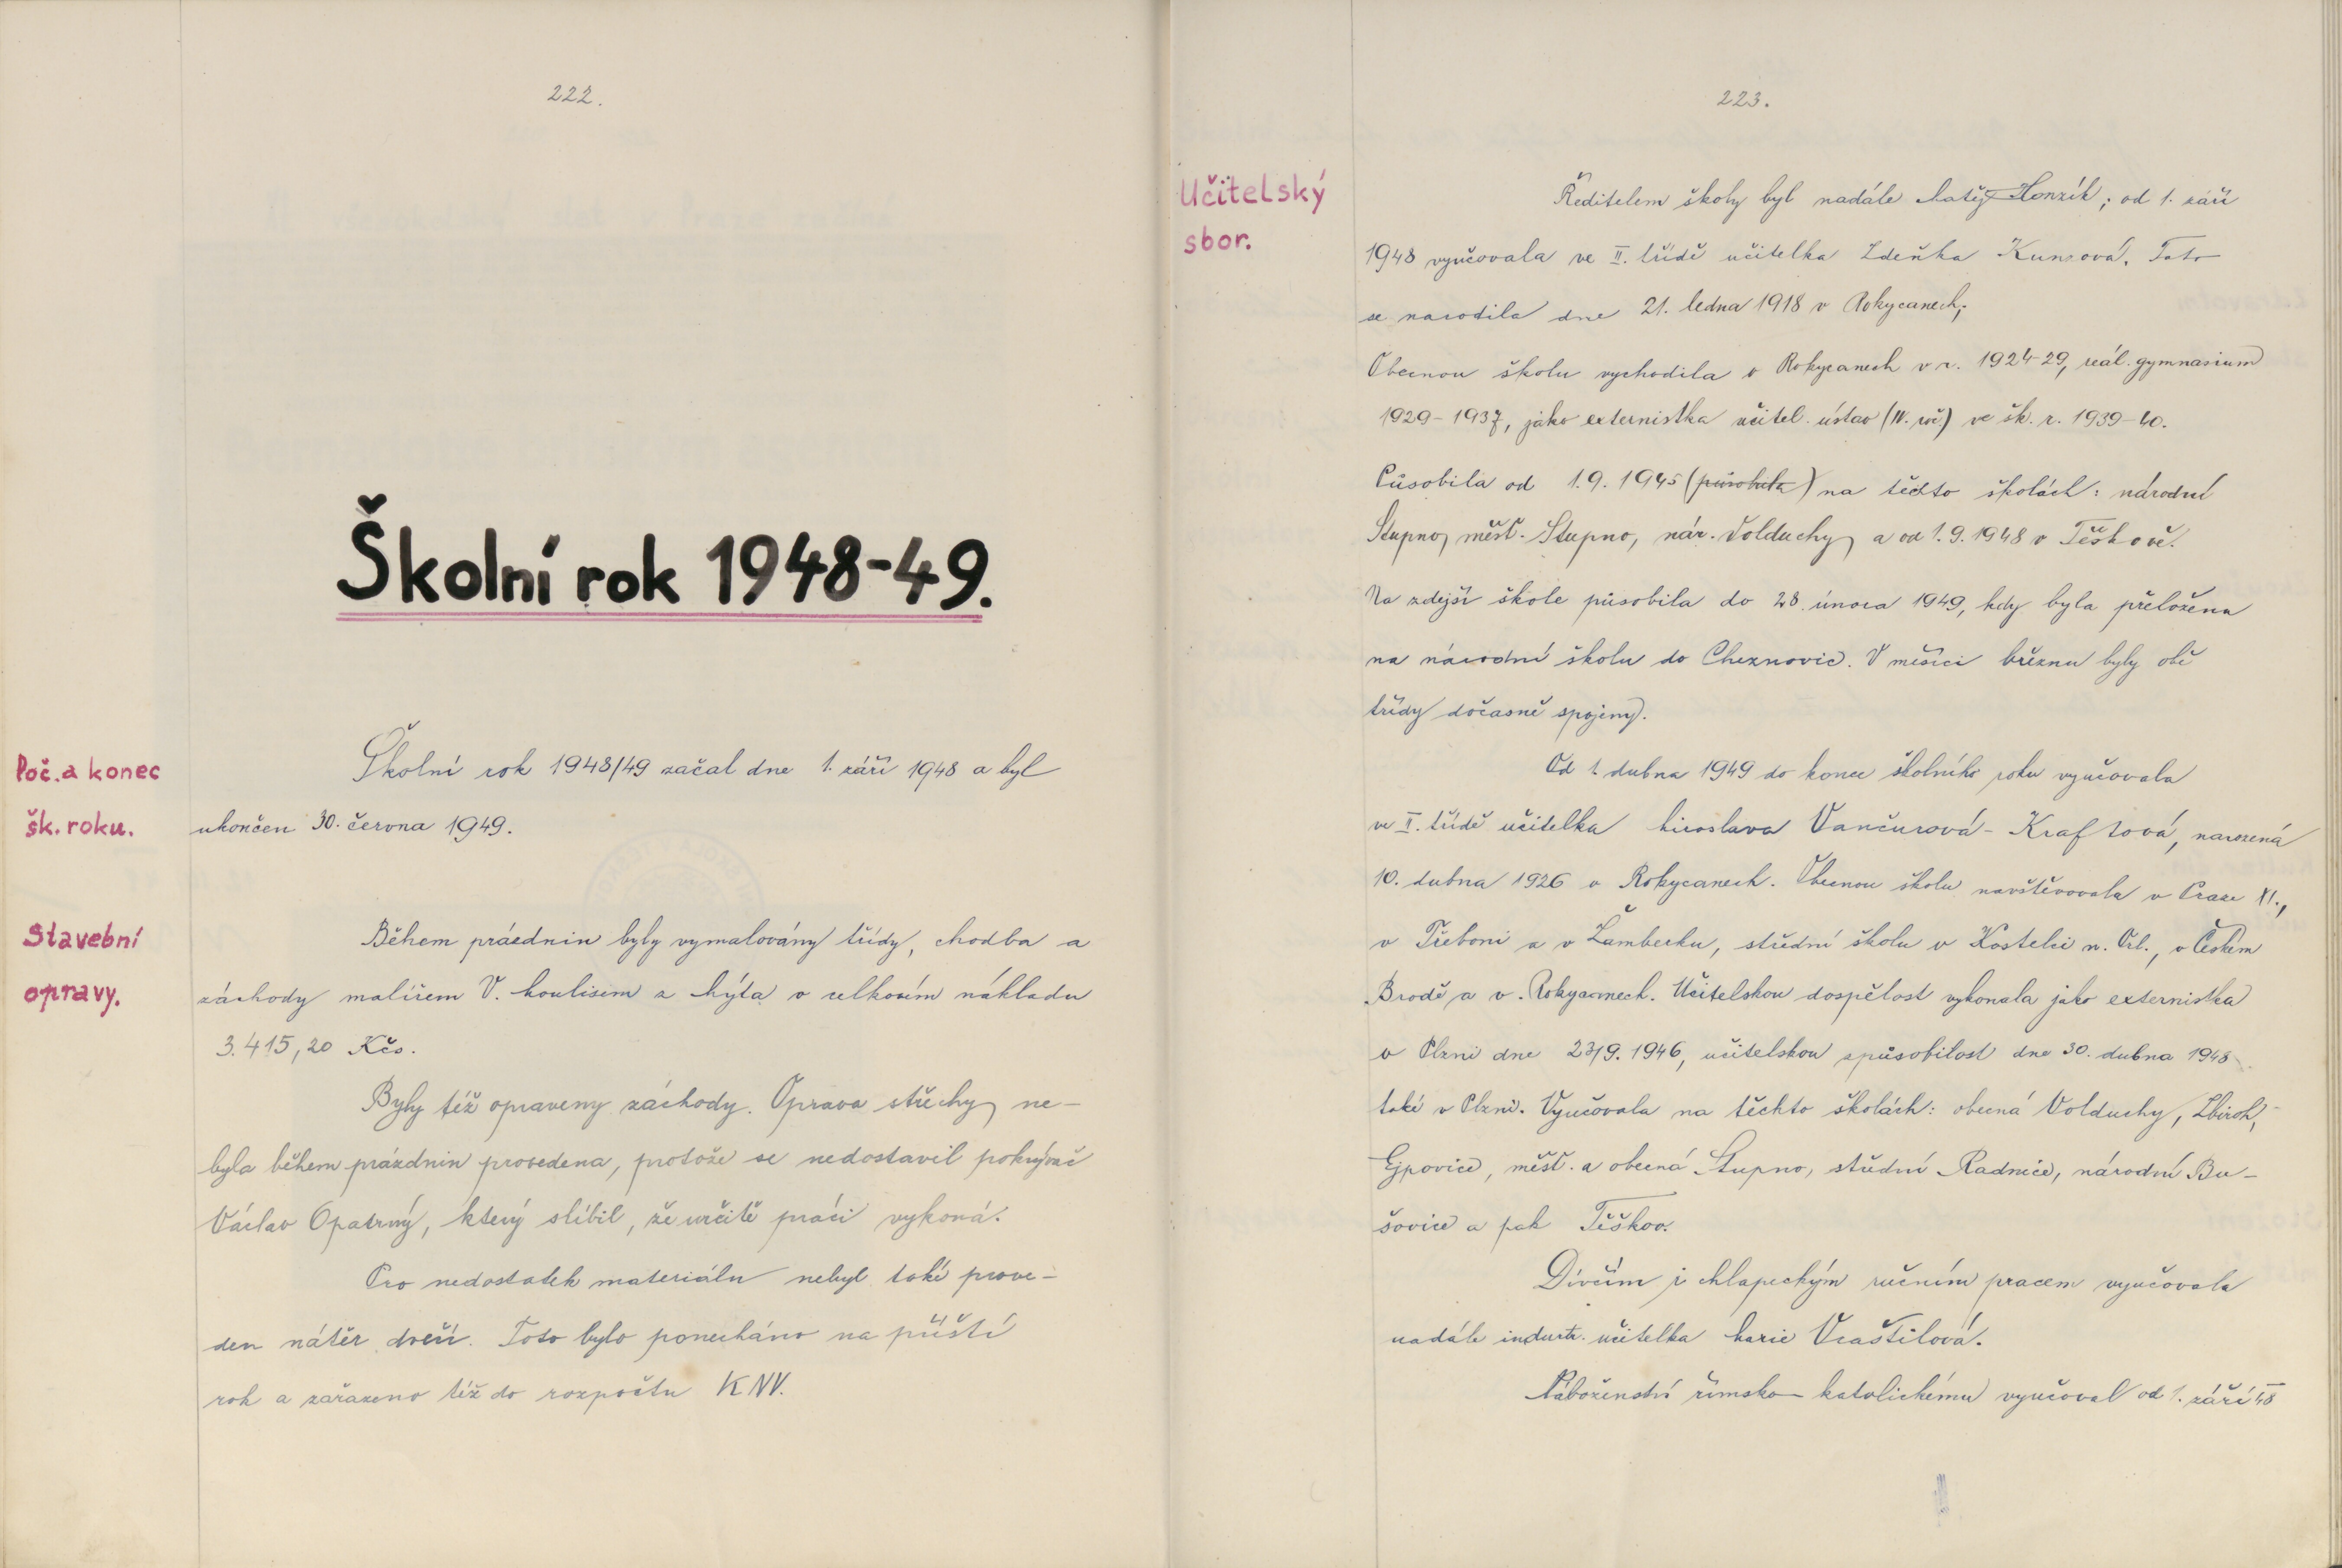 222.
Školní rok 1948-49.
Poč. a konec
šk. roku.
Školní rok 1948/49 začal dne 1. září 1948 a byl
ukončen 30. června 1949.
Stavební
opravy.
Během prázdnin byly vymalovány třídy, chodba a
záchody malířem V. Moulisem z Mýta o celkovém nákladu
3.415,20 Kčs.
Byly též opraveny záchody. Oprava střechy ne-
byla během prázdnin provedena, protože se nedostavil pokrývač
Václav Opatrný, který slíbil, že určitě práci vykoná.
Pro nedostatek materiálu nebyl také prove-
den nátěr dveří. Toto bylo ponecháno na příští
rok a zařazeno též do rozpočtu KNV.
223.
Učitelský
sbor.
Ředitelem školy byl nadále Matěj Honzík; od 1. září
1948 vyučovala ve II. třídě učitelka Zdeňka Kunzová. Tato
se narodila dne 21. ledna 1918 v Rokycanech;
Obecnou školu vychodila v Rokycanech v r. 1924-29, reál. gymnasium
1929-1937, jako externistka učitel. ústav (IV. roč.) ve šk. r. 1939-40.
Působila od 1.9.1945 (působila) na těchto školách: národní
Stupno, měšť. Stupno, nár. Volduchy a od 1.9.1948 v Těškově.
Na zdejší škole působila do 28. února 1949, kdy byla přeložena
na národní školu do Cheznovic. V měsíci březnu byly obě
třídy dočasně spojeny.
Od 1. dubna 1949 do konce školního roku vyučovala
ve II. třídě učitelka Miroslava Vančurová-Kraftová, narozená
10. dubna 1926 v Rokycanech. Obecnou školu navštěvovala v Praze XI.,
v Třeboni a v Žamberku, střední školu v Kostelci n. Orl., v Českém
Brodě a v Rokycanech. Učitelskou dospělost vykonala jako externistka
v Plzni dne 23/9. 1946, učitelskou způsobilost dne 30. dubna 1948
také v Plzni. Vyučovala na těchto školách: obecná Volduchy, Zbiroh,
Ejpovice, měšť. a obecná Stupno, střední Radnice, národní Bu-
šovice a pak Těškov.
Dívčím i chlapeckým ručním pracem vyučovala
nadále industr. učitelka Marie Vraštilová.
Náboženství římsko-katolickému vyučoval od 1. září 48